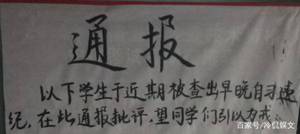 通报
以下学生于近期被查出早晚自习违
纪，在此通报批评，望同学们引以为戒。
百家号/冷侃娱文